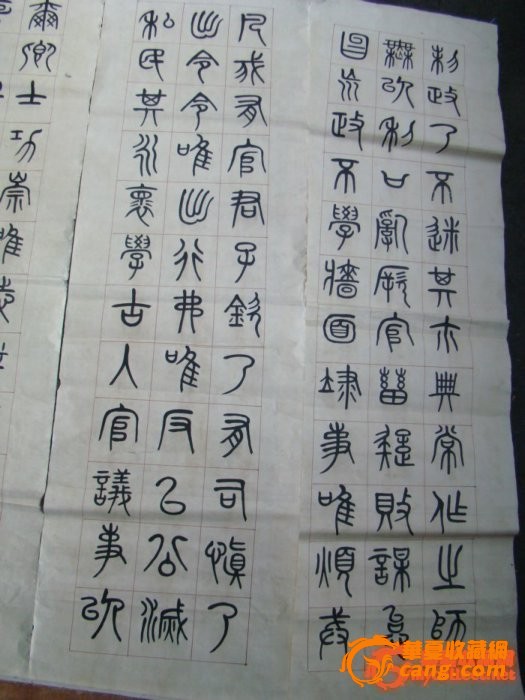 制政乃不迷其尒典常作之師
無以利口亂厥官蓄疑敗謀怠
曶巟政不學牆面蒞事唯煩戒
凡我有官君子欽乃有司慎乃
出令令唯出行弗唯反以公滅
私民其允褱學古入官議事以
爾卿士功崇唯志
華夏收藏網
cang.com